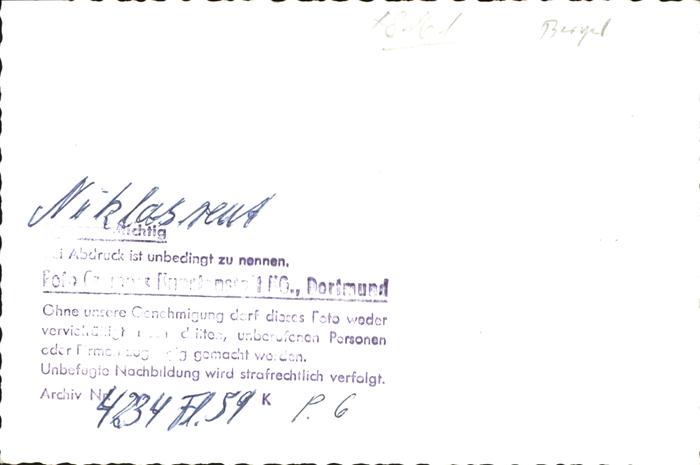 Niklas
pflichtig
Bei Abdruck ist unbedingt zu nennen.
Foto Kunstanstalt KG., Dortmund
Ohne unsere Genehmigung darf dieses Foto weder
vervielfältigt noch dritten, unberufenen Personen
oder Firmen zugängig gemacht werden.
Unbefugte Nachbildung wird strafrechtlich verfolgt.
Archiv Nr. 4234 Fl. 59 K P. 6